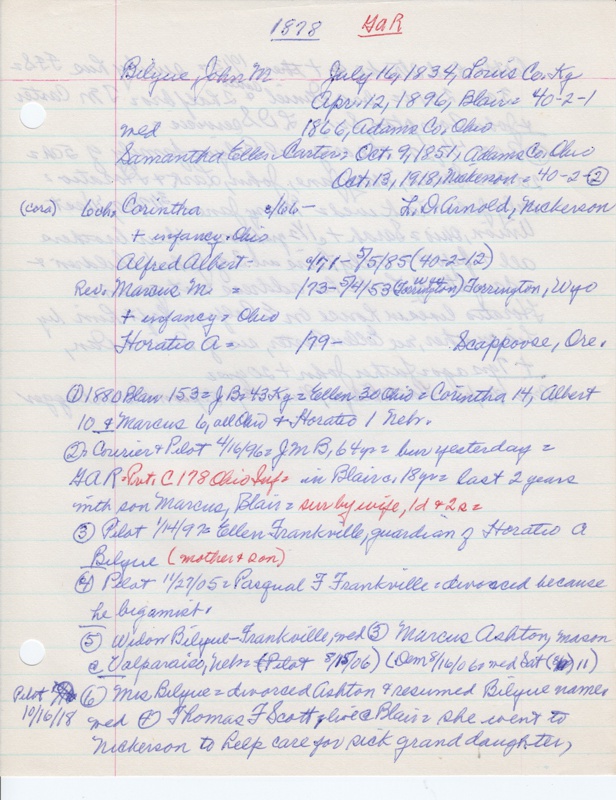 1878 GaR
Bilyue, John M July 16, 1834, Louis Co. Ky
Apr. 12, 1896, Blair = 40-2-1
med 1866, Adams Co, Ohio
Samantha Ellen Carter = Oct. 9, 1851, Adams Co, Ohio
Oct. 13, 1918, Nickerson = 40-2-2
(Cora) 6 ch. Corintha c/66 - L. D. Arnold, Nickerson
+ infancy - Ohio
Alfred Albert - 9/71 - 5/5/85 (40-2-12)
Rev. Marcus M. = /73 - 5/4/53 (Torrington) Torrington, Wyo
+ infancy = Ohio
Horatio A = /79 - Scappoose, Ore.
① 1880 Blair 153 = J B = 43 Ky = Ellen 30 Ohio = Corintha 14, Albert
10 & Marcus 6, all Ohio & Horatio 1 Nebr.
② Courier & Pilot 4/16/96 = J M B, 64 yr = bur yesterday =
GAR = Pvt. C 178 Ohio Inf = in Blair c. 18 yr = last 2 years
with son Marcus, Blair = sur by wife, 1d & 2s =
③ Pilot 1/14/97 = Ellen Frankville, guardian of Horatio A
Bilyue (mother & son)
④ Pilot 11/27/05 = Pasqual F Frankville = divorced because
he bigamist.
⑤ Widow Bilyue-Frankville, med ③ Marcus Ashton, mason
@ Valparaiso, Nebr = (Pilot 8/15/06) (Dem 8/16/06 = med Sat 11)
Pilot 10/16/18 ⑥ Mrs Bilyue = divorsed Ashton & resumed Bilyue name
med ④ Thomas F Scott, live @ Blair = she went to
Nickerson to help care for sick grand daughter,